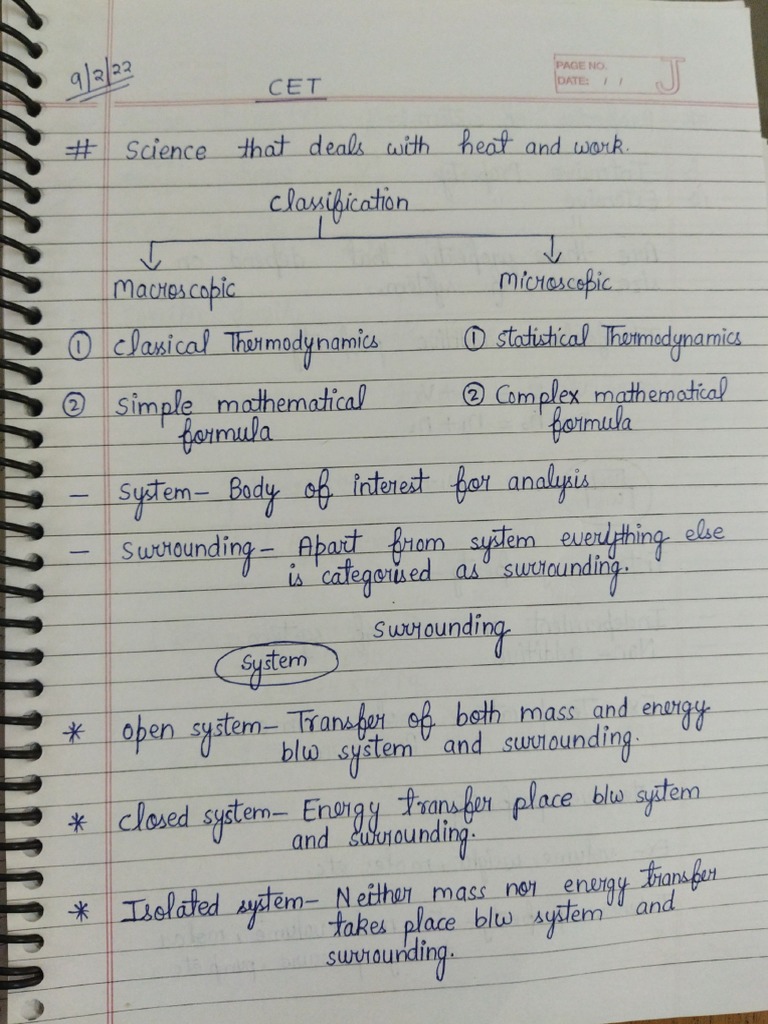 9/2/22
CET
PAGE NO.
DATE: / /
J
# Science that deals with heat and work.
Classification
Macroscopic
Microscopic
① Classical Thermodynamics
① Statistical Thermodynamics
② Simple mathematical
formula
② Complex mathematical
formula
- System - Body of interest for analysis
- Surrounding - Apart from system everything else
is categorised as surrounding.
Surrounding
System
* Open system - Transfer of both mass and energy
b/w system and surrounding.
* Closed system - Energy transfer place b/w system
and surrounding.
* Isolated system - Neither mass nor energy transfer
takes place b/w system and
surrounding.